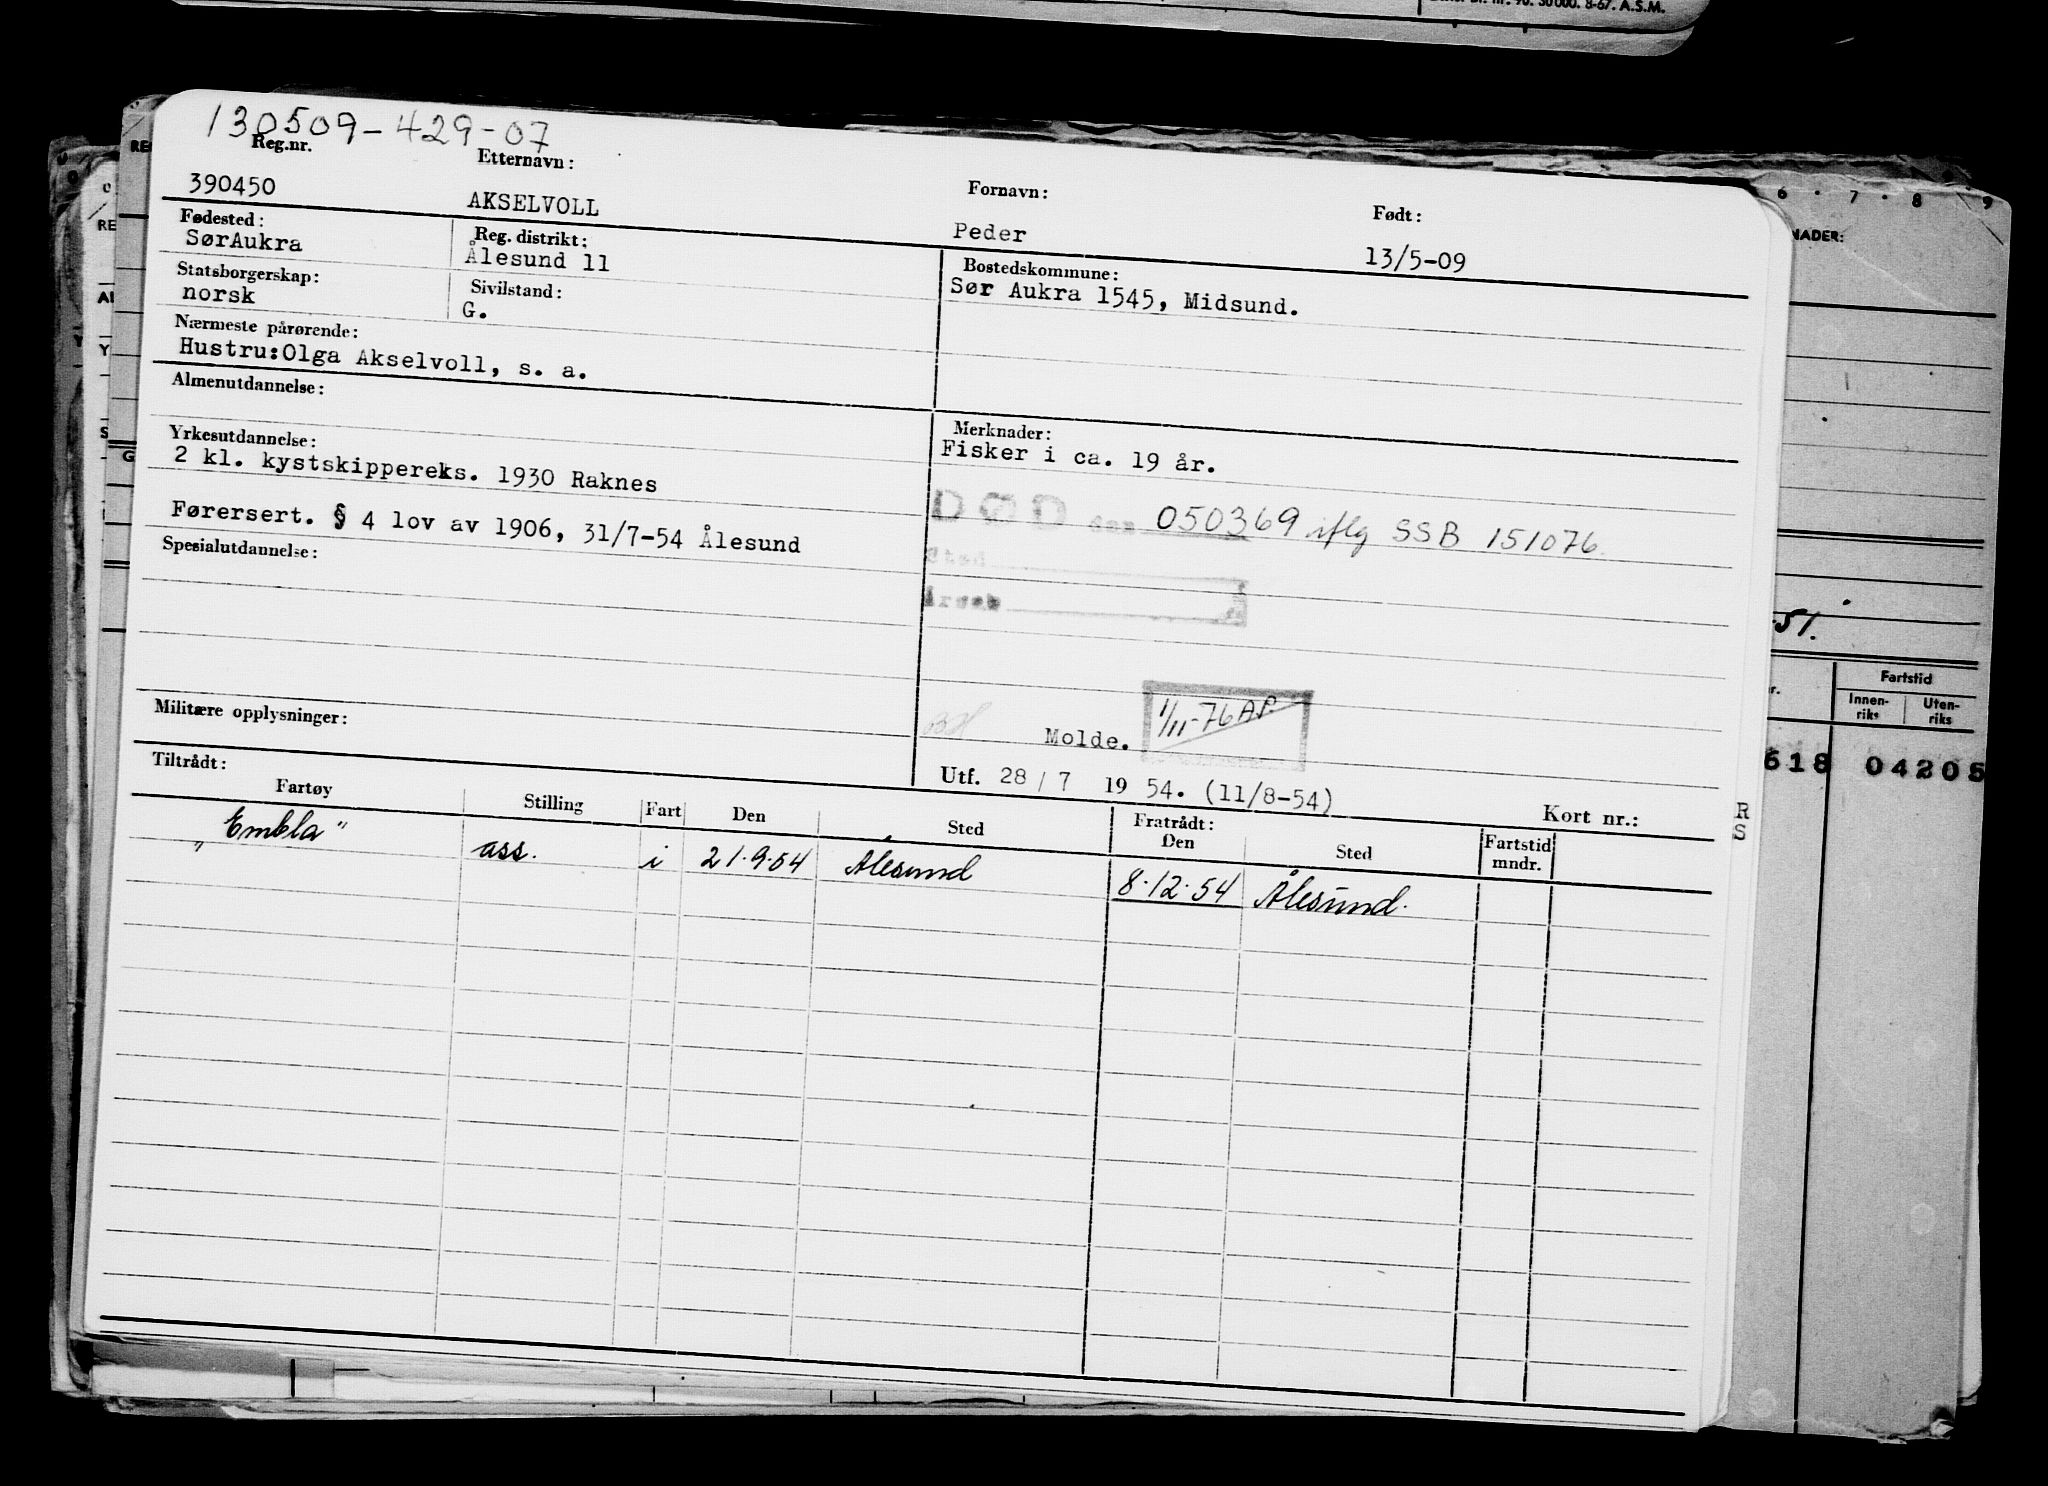 Best. nr. 90. 30 000. 8-67. A.S.M.
130509-429-07
Reg.nr. Etternavn: Fornavn: Født:
390450 AKSELVOLL Peder 13/5-09
Fødested: Reg. distrikt: Bostedskommune:
SørAukra Ålesund 11 Sør Aukra 1545, Midsund.
Statsborgerskap: Sivilstand:
norsk G.
Nærmeste pårørende:
Hustru:Olga Akselvoll, s. a.
Almenutdannelse: Merknader:
Fisker i ca. 19 år.
Yrkesutdannelse:
2 kl. kystskippereks. 1930 Raknes
050369 iflg SSB 151076.
Førersert. § 4 lov av 1906, 31/7-54 Ålesund
Spesialutdannelse:
Militære opplysninger:
Molde. 1/11-76 A.P.
Utf. 28/7 1954. (11/8-54) Kort nr.:
Tiltrådt: Fratrådt:
Fartøy Stilling Fart Den Sted Den Sted Fartstid mndr.
"Embla" ass. i 21.9.54 Ålesund 8.12.54 Ålesund.
6 . 7 . 8 . 9
NADER:
-51.
Fartstid
Innen-riks Uten-riks
618 04205
R
S